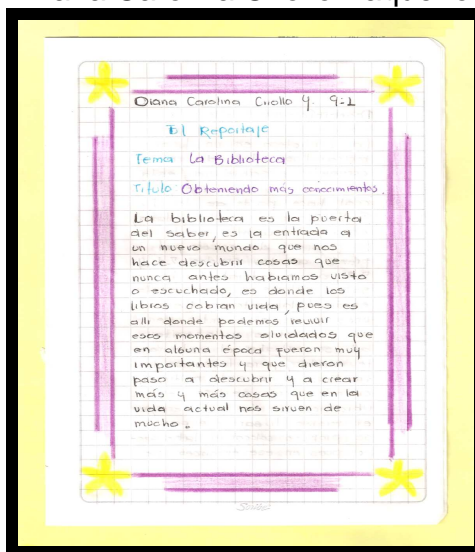 Diana Carolina Criollo Y. 9-2
El Reportaje
Tema La Biblioteca
Titulo Obteniendo más conocimientos.
La biblioteca es la puerta
del saber, es la entrada a
un nuevo mundo que nos
hace descubrir cosas que
nunca antes habiamos visto
o escuchado, es donde los
libros cobran vida, pues es
alli donde podemos revivir
esos momentos olvidados que
en alguna época fueron muy
importantes y que dieron
paso a descubrir y a crear
más y más cosas que en la
vida actual nos sirven de
mucho.